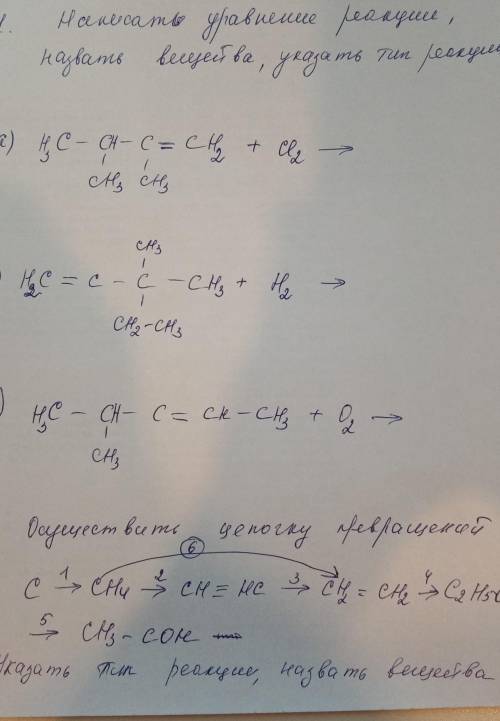 Написать уравнение реакции,
назвать вещества, указать тип реакции
а) H₃C - CH - C = CH₂ + Cl₂ →
CH₃ CH₃
CH₃
H₂C = C - C - CH₃ + H₂ →
CH₂-CH₃
) H₃C - CH - C = CH - CH₃ + O₂ →
CH₃
Осуществить цепочку превращений
6
C 1→ CH₄ 2→ CH ≡ HC 3→ CH₂ = CH₂ 4→ C₂H₅O
5→ CH₃ - COH
Указать тип реакции, назвать вещества